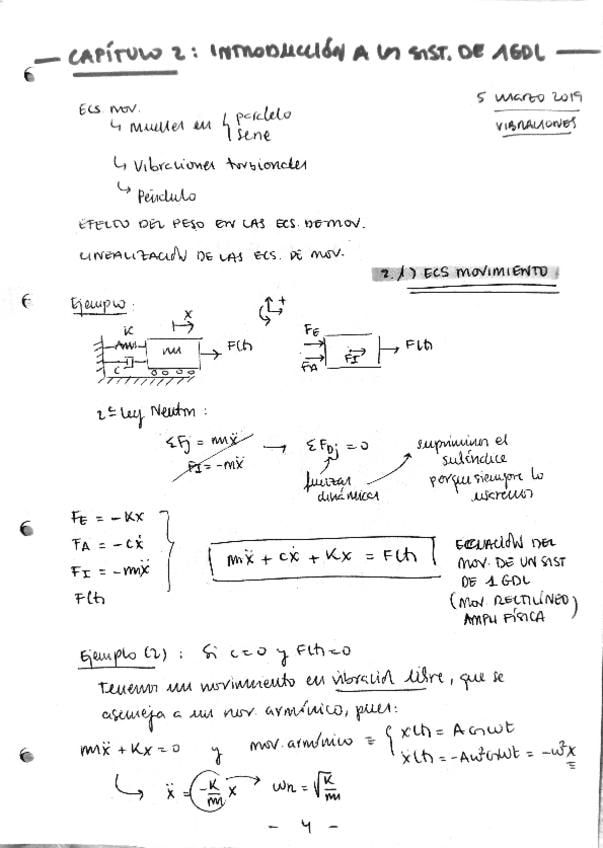 CAPÍTULO 2: INTRODUCCIÓN A UN SIST. DE 1GDL
5 marzo 2019
VIBRACIONES
ECS. MOV.
↳ Muelles en { paralelo
serie
↳ Vibraciones torsionales
↳ Péndulo
EFECTO DEL PESO EN LAS ECS. DE MOV.
LINEALIZACIÓN DE LAS ECS. DE MOV.
2.1) ECS MOVIMIENTO
Ejemplo:
x
+
K
m
F(t)
C
FE
FA
FI
F(t)
2ª Ley Newton:
ΣFj = mẍ → ΣFDj = 0
FI = -mẍ
fuerzas dinámicas
suprimimos el
subíndice
porque siempre lo
usaremos
FE = -Kx
FA = -cẋ
FI = -mẍ
F(t)
mẍ + cẋ + Kx = F(t)
ECUACIÓN DEL
MOV. DE UN SIST
DE 1 GDL
(MOV. RECTILÍNEO)
AMPLI FÍSICA
Ejemplo (2): Si c=0 y F(t)=0
tenemos un movimiento en vibración libre, que se
asemeja a un mov. armónico, pues:
mẍ + Kx = 0 y mov. armónico = { x(t) = A cos ωt
ẍ(t) = -Aω² cos ωt = -ω²x
↳ ẍ = -K/m x → ωn = √K/m
- 4 -